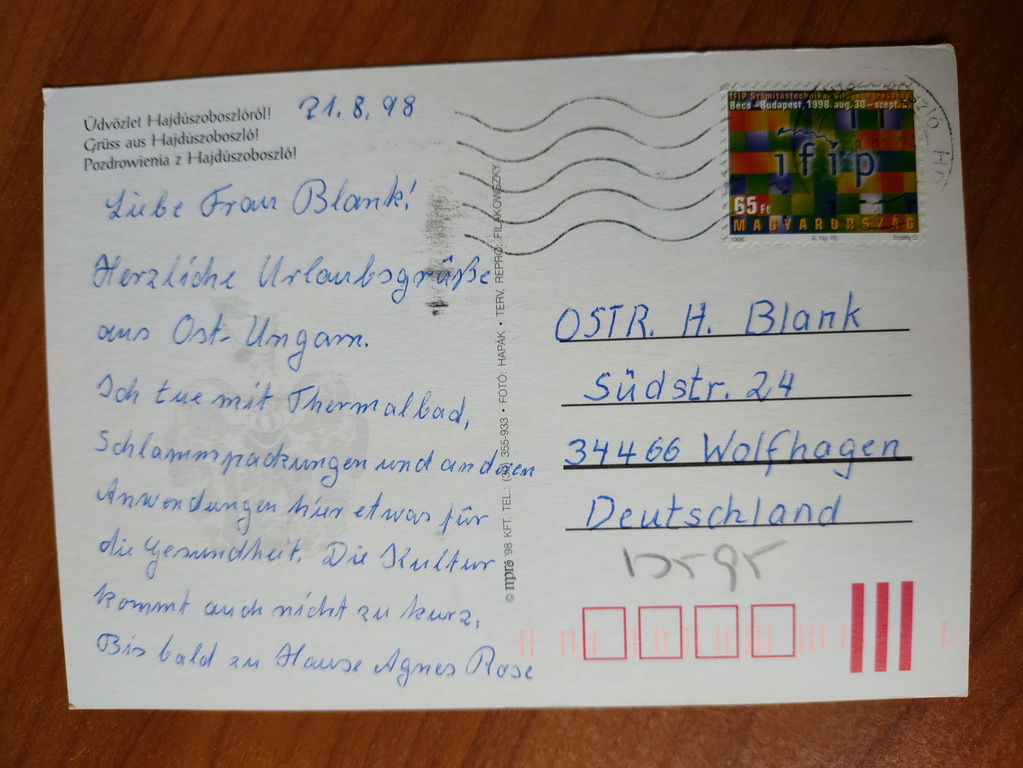 Üdvözlet Hajdúszoboszlóról!
Grüss aus Hajdúszoboszló!
Pozdrowienia z Hajdúszoboszló!
21.8.98
Liebe Frau Blank!
Herzliche Urlaubsgrüße
aus Ost-Ungarn.
Ich tue mit Thermalbad,
Schlammpackungen und anderen
Anwendungen hier etwas für
die Gesundheit. Die Kultur
kommt auch nicht zu kurz.
Bis bald zu Hause Agnes Rose
© npro '98 KFT. TEL.: 355-933 • FOTÓ: HAPÁK • TERV, REPRO: FILAKOWSZKY
Bécs - Budapest, 1998. aug. 30 - szept.
ifip
65 Ft
MAGYARORSZÁG
1998 A. Ny. Rt.
OSTR. H. Blank
Südstr. 24
34466 Wolfhagen
Deutschland